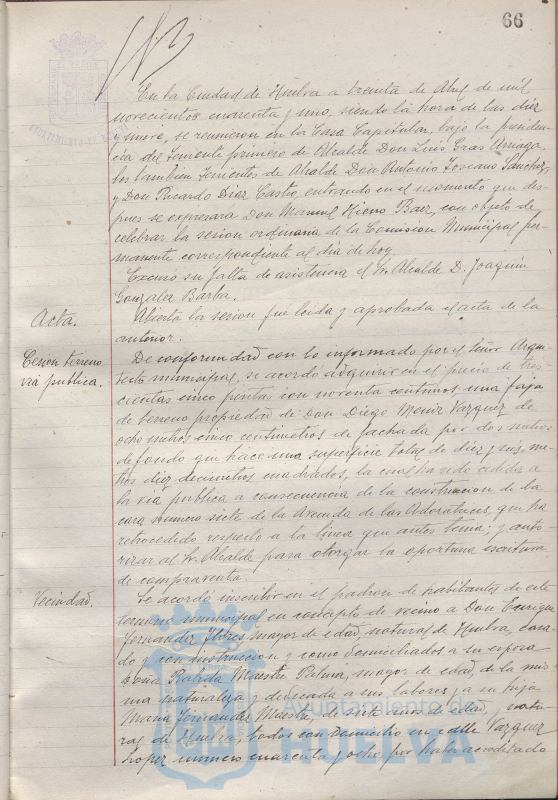 66
En la Ciudad de Huelva a treinta de Abril de mil
novecientos cuarenta y uno, siendo la hora de las diez
y nueve, se reunieron en la Casa Capitular, bajo la presiden
cia del Teniente primero de Alcalde Don Luis Eras Arriaga,
los tambien Tenientes de Alcalde Don Antonio Toscano Sanchez,
y Don Ricardo Diaz Castro, entrando en el momento que des-
pues se expresara Don Manuel Hierro Baez, con objeto de
celebrar la sesion ordinaria de la Comision Municipal per-
manente correspondiente al dia de hoy
Excuso su falta de asistencia el Sr. Alcalde D. Joaquin
Gonzalez Barba.
Acta.
Abierta la sesion fue leida y aprobada el acta de la
anterior.
Cesion terreno
via publica.
De conformidad con lo informado por el Señor Arqui
tecto municipal, se acordó adquirir en el precio de tres-
cientas cinco pesetas con noventa centimos una faja
de terreno propiedad de Don Diego Vazquez de
ocho metros cinco centimetros de fachada por dos metros
de fondo que hace una superficie total de diez y seis me-
tros diez decimetros cuadrados, la cual ha sido cedida a
la via publica a consecuencia de la construccion de la
casa numero siete de la Avenida de las Adoratrices, que ha
retrocedido respecto a la linea que antes tenia; y auto
rizar al Sr. Alcalde para otorgar la oportuna escritura
de compraventa.
Vecindad.
Se acordó inscribir en el padron de habitantes de este
termino municipal en concepto de vecino a Don Enrique
Fernandez Flores mayor de edad, natural de Huelva, casa
do, con instruccion y como domiciliados a su esposa
Doña Rabida Maestre Palma, mayor de edad, de la mis
ma naturaleza y dedicada a sus labores, y a su hija
Maria Fernandez Maestre, de siete años de edad, natu-
ral de Huelva, todos con domicilio en calle Vazquez
Lopez numero cuarenta y ocho por haber acreditado
Ayuntamiento de
HUELVA